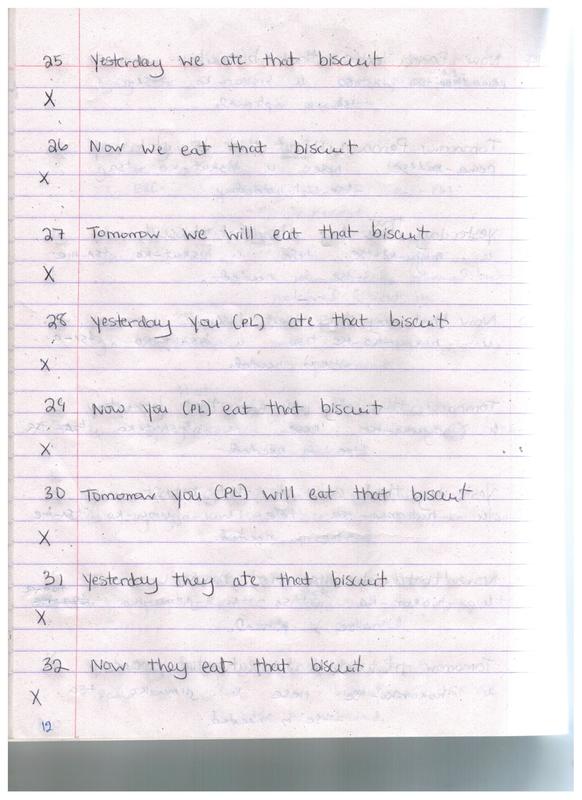 25 Yesterday we ate that biscuit
X
26 Now we eat that biscuit
X
27 Tomorrow we will eat that biscuit
X
28 Yesterday you (PL) ate that biscuit
X
29 Now you (PL) eat that biscuit
X
30 Tomorrow you (PL) will eat that biscuit
X
31 Yesterday they ate that biscuit
X
32 Now they eat that biscuit
X
12